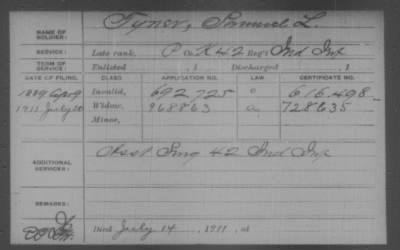 NAME OF SOLDIER: Tyner, Samuel L.
SERVICE: Late rank, P Co. K 42 Reg't Ind Inf
TERM OF SERVICE: Enlisted , 1 Discharged , 1
DATE OF FILING. CLASS. APPLICATION NO. LAW. CERTIFICATE NO.
1889 Apr 9 Invalid, 692725 616,498
1911 July 20 Widow, 968863 728635
Minor,
ADDITIONAL SERVICES: Asst Surg 42 Ind Inf
REMARKS:
Died July 14, 1911, at